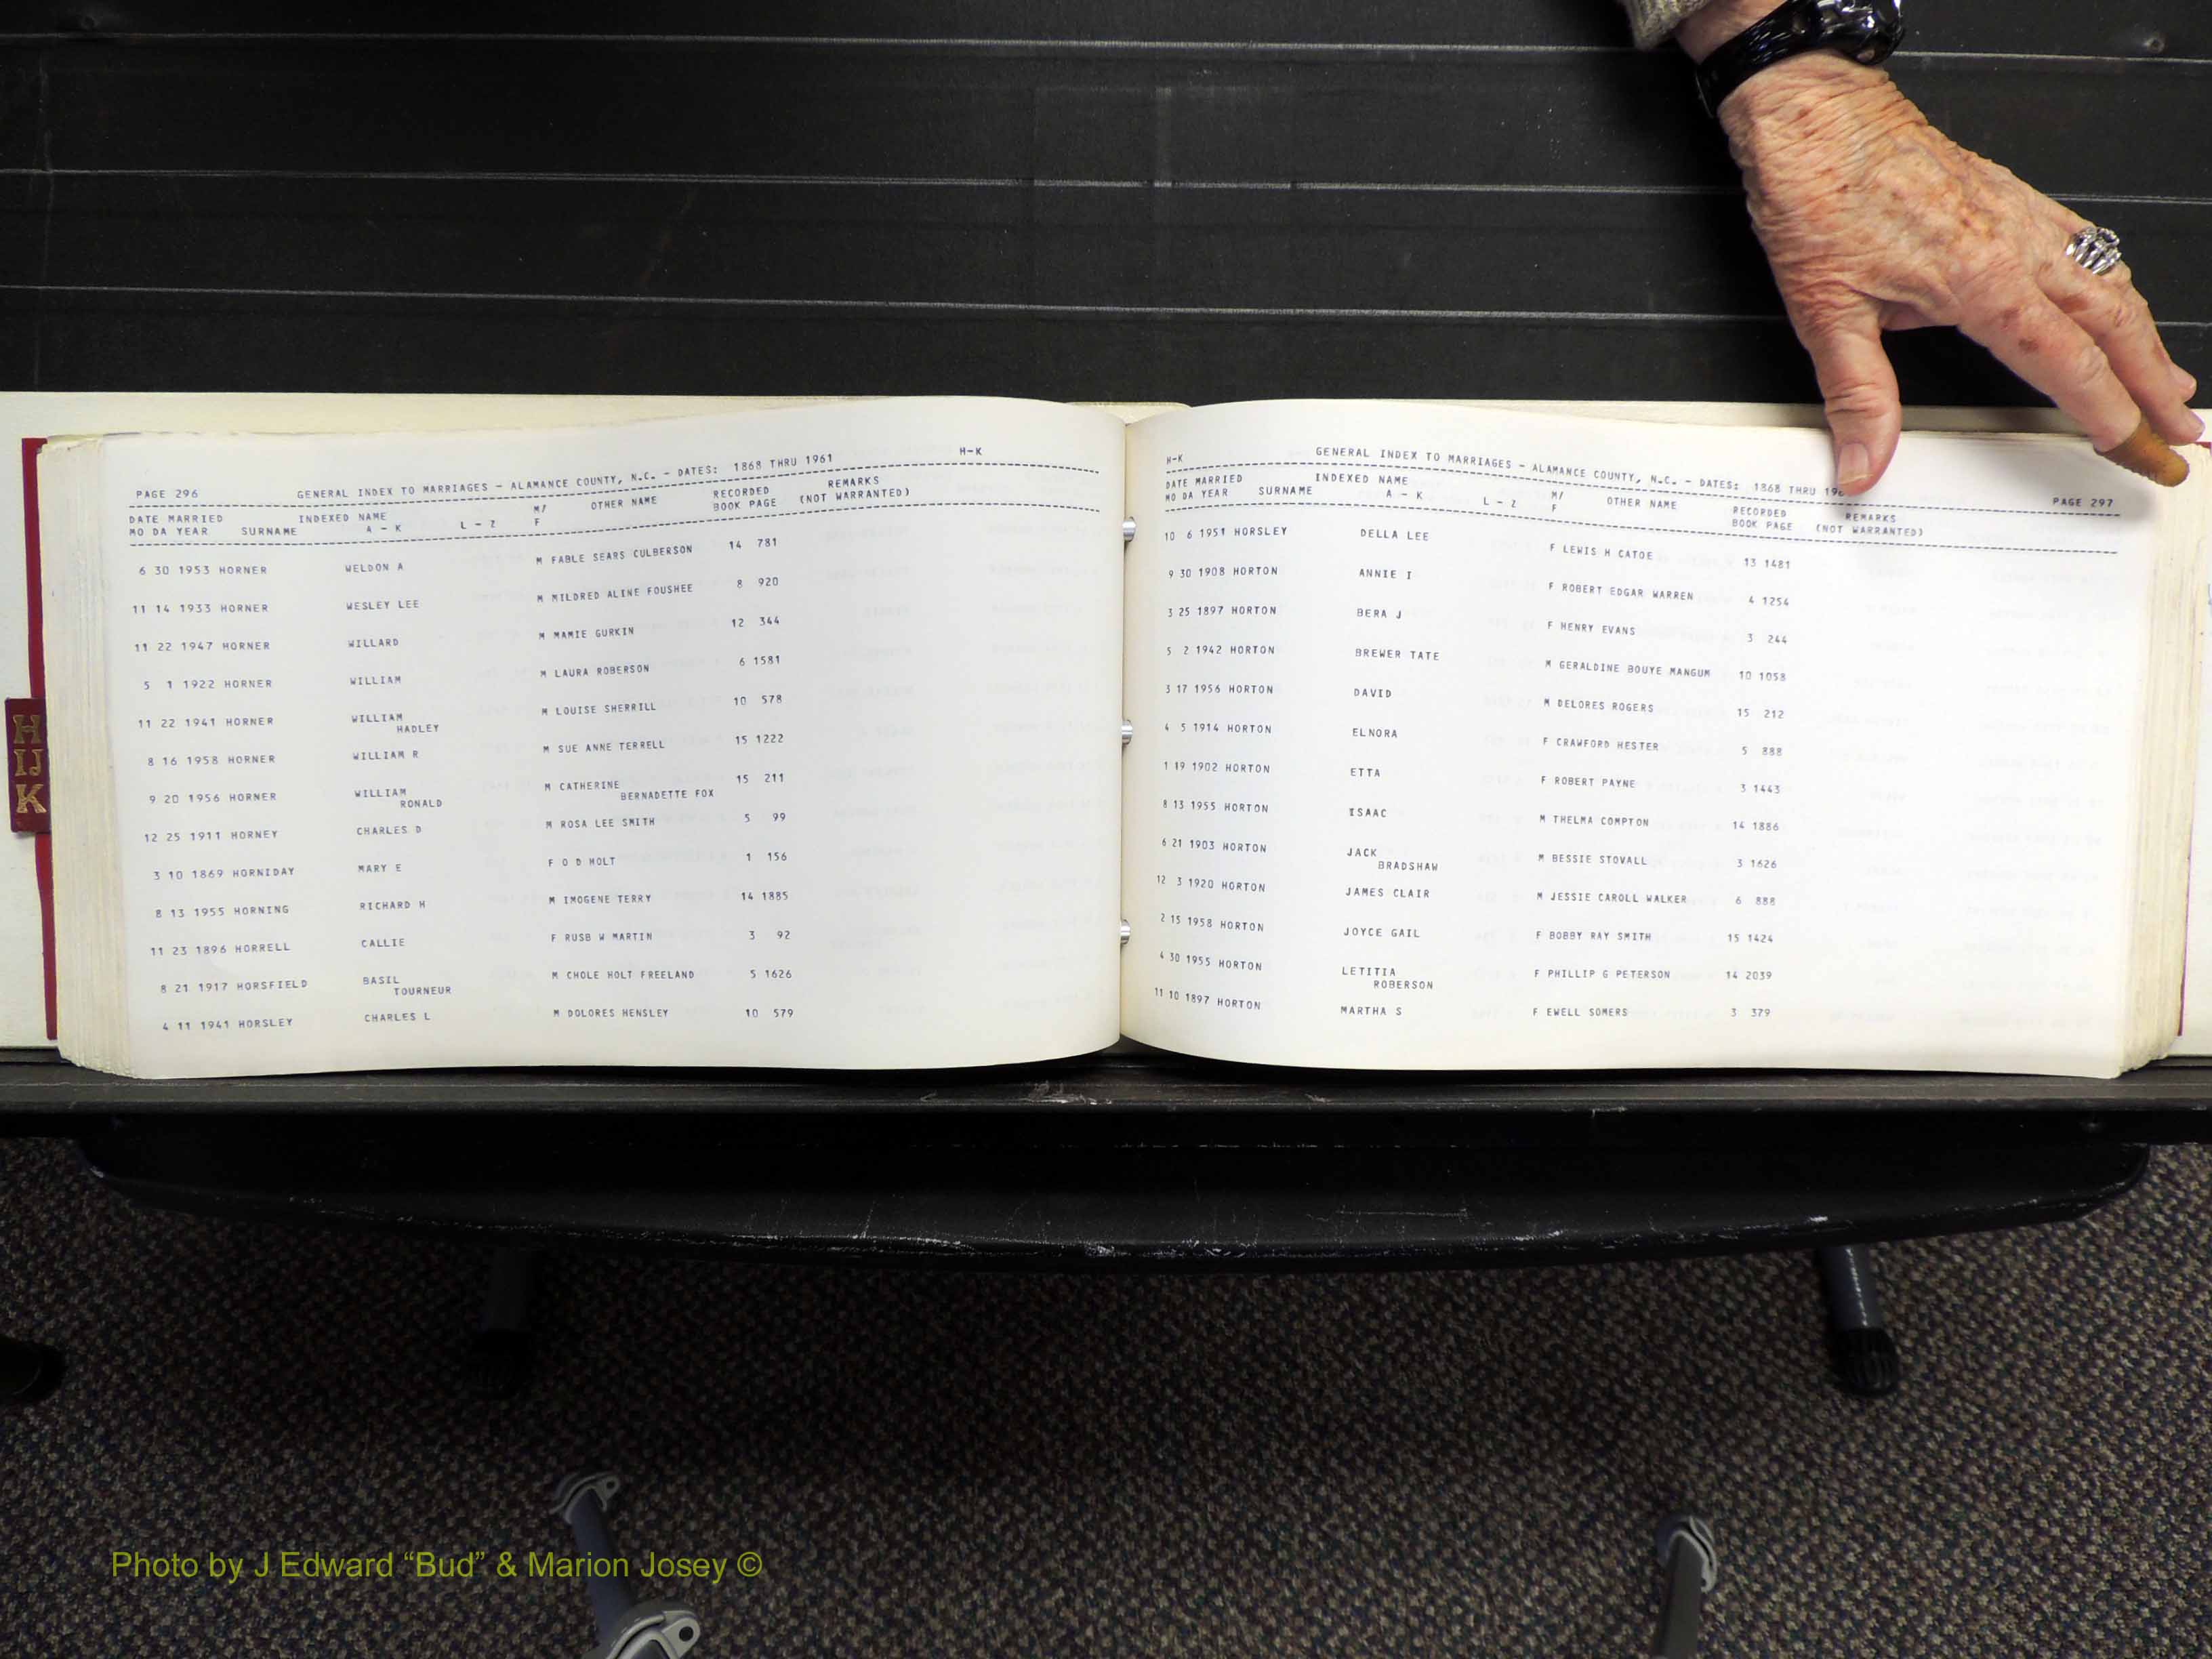 H-K
PAGE 296 GENERAL INDEX TO MARRIAGES - ALAMANCE COUNTY, N.C. - DATES: 1868 THRU 1961
DATE MARRIED INDEXED NAME M/ OTHER NAME RECORDED REMARKS
MO DA YEAR SURNAME A - K L - Z F BOOK PAGE (NOT WARRANTED)
6 30 1953 HORNER WELDON A M FABLE SEARS CULBERSON 14 781
11 14 1933 HORNER WESLEY LEE M MILDRED ALINE FOUSHEE 8 920
11 22 1947 HORNER WILLARD M MAMIE GURKIN 12 344
5 1 1922 HORNER WILLIAM M LAURA ROBERSON 6 1581
11 22 1941 HORNER WILLIAM M LOUISE SHERRILL 10 578
HADLEY
8 16 1958 HORNER WILLIAM R M SUE ANNE TERRELL 15 1222
9 20 1956 HORNER WILLIAM M CATHERINE 15 211
RONALD BERNADETTE FOX
12 25 1911 HORNEY CHARLES D M ROSA LEE SMITH 5 99
3 10 1869 HORNIDAY MARY E F O D HOLT 1 156
8 13 1955 HORNING RICHARD H M IMOGENE TERRY 14 1885
11 23 1896 HORRELL CALLIE F RUSB W MARTIN 3 92
8 21 1917 HORSFIELD BASIL M CHOLE HOLT FREELAND 5 1626
TOURNEUR
4 11 1941 HORSLEY CHARLES L M DOLORES HENSLEY 10 579
H
IJ
K
H-K GENERAL INDEX TO MARRIAGES - ALAMANCE COUNTY, N.C. - DATES: 1868 THRU PAGE 297
DATE MARRIED INDEXED NAME M/ OTHER NAME RECORDED REMARKS
MO DA YEAR SURNAME A - K L - Z F BOOK PAGE (NOT WARRANTED)
10 6 1951 HORSLEY DELLA LEE F LEWIS H CATOE 13 1481
9 30 1908 HORTON ANNIE I F ROBERT EDGAR WARREN 4 1254
3 25 1897 HORTON BERA J F HENRY EVANS 3 244
5 2 1942 HORTON BREWER TATE M GERALDINE BOUYE MANGUM 10 1058
3 17 1956 HORTON DAVID M DELORES ROGERS 15 212
4 5 1914 HORTON ELNORA F CRAWFORD HESTER 5 888
1 19 1902 HORTON ETTA F ROBERT PAYNE 3 1443
8 13 1955 HORTON ISAAC M THELMA COMPTON 14 1886
6 21 1903 HORTON JACK M BESSIE STOVALL 3 1626
BRADSHAW
12 3 1920 HORTON JAMES CLAIR M JESSIE CAROLL WALKER 6 888
2 15 1958 HORTON JOYCE GAIL F BOBBY RAY SMITH 15 1424
4 30 1955 HORTON LETITIA F PHILLIP G PETERSON 14 2039
ROBERSON
11 10 1897 HORTON MARTHA S F EWELL SOMERS 3 379
Photo by J Edward “Bud” & Marion Josey ©